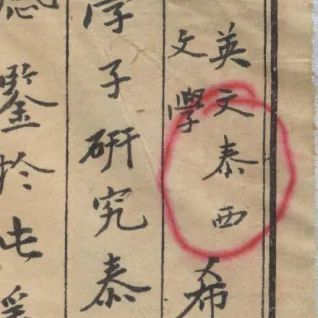 英文泰西
文學
希
子研究泰
鑒於屯